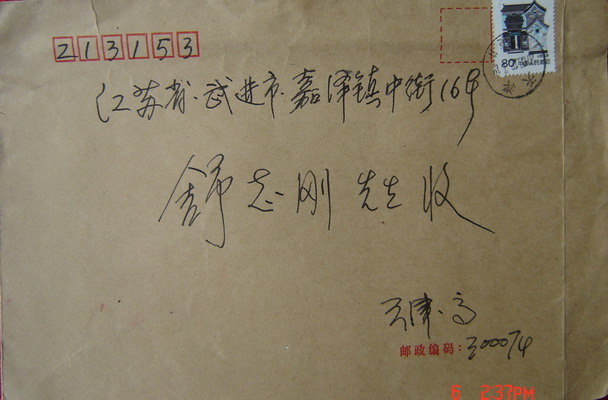 213153
80分
江苏省.武进市.嘉泽镇中街16号
舒志刚 先生 收
天津.高
邮政编码：300074
6 2:37PM